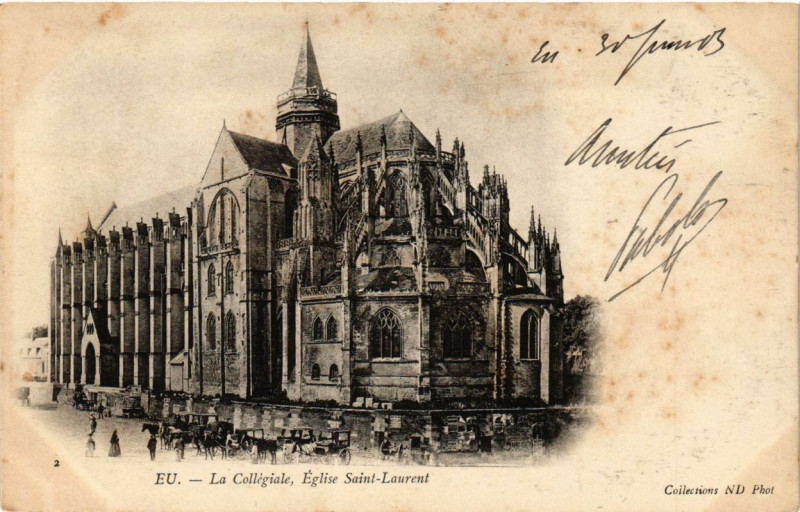 Eu 30 Juin 03
Amitiés
2
EU. — La Collégiale, Église Saint-Laurent
Collections ND Phot